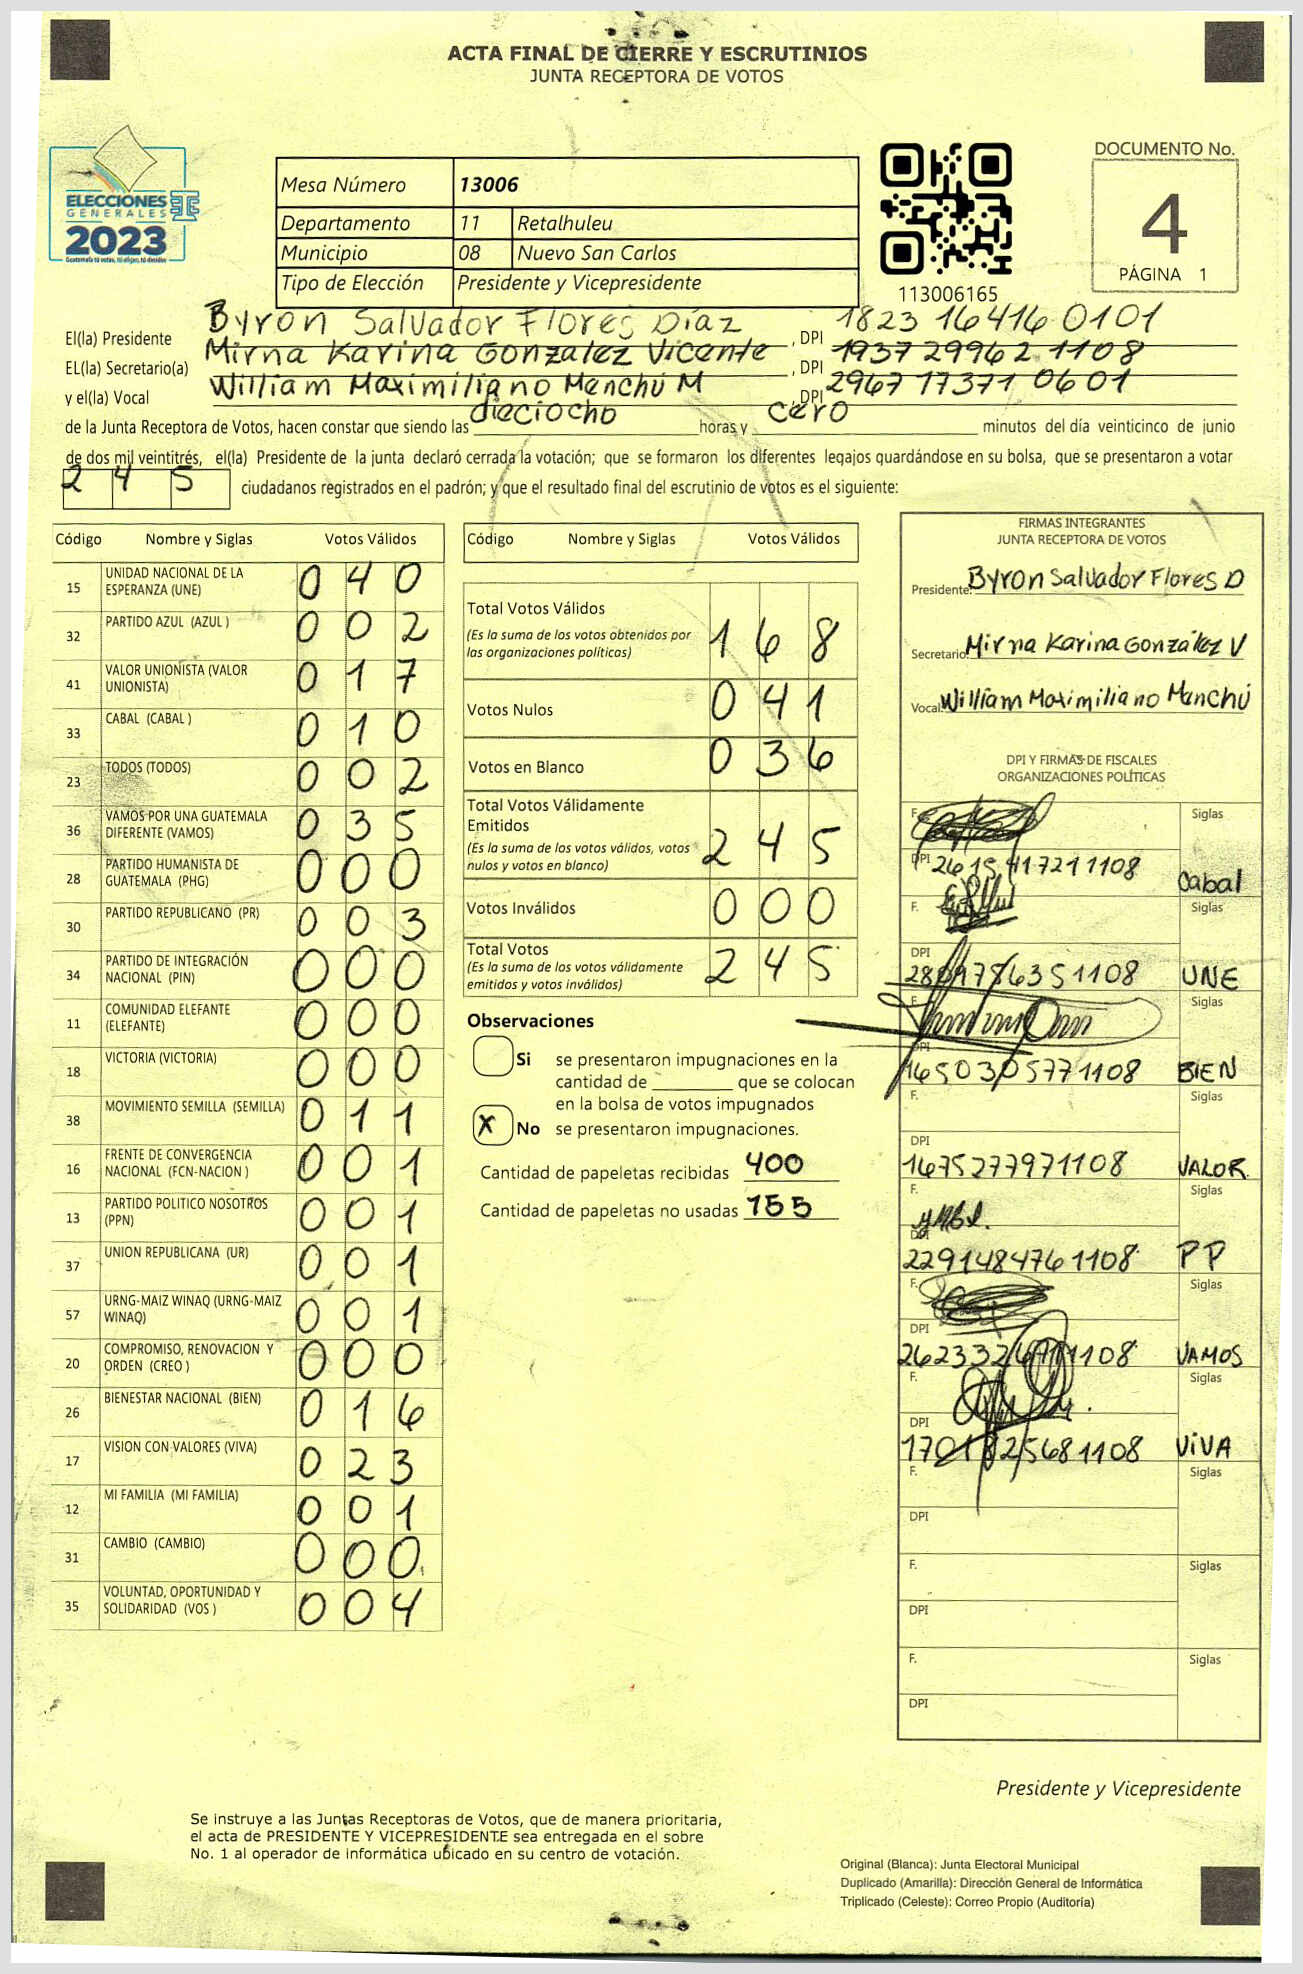 ACTA FINAL DE CIERRE Y ESCRUTINIOS
JUNTA RECEPTORA DE VOTOS
ELECCIONES
GENERALES
2023
Guatemala tú votas, tú eliges, tú decides
Mesa Número 13006
Departamento 11 Retalhuleu
Municipio 08 Nuevo San Carlos
Tipo de Elección Presidente y Vicepresidente
113006165
DOCUMENTO No.
4
PÁGINA 1
El(la) Presidente Byron Salvador Flores Díaz, DPI 1823 16416 0101
EL(la) Secretario(a) Mirna Karina Gonzalez Vicente, DPI 1937 29962 1108
y el(la) Vocal William Maximiliano Menchú M, DPI 2967 17371 0601
de la Junta Receptora de Votos, hacen constar que siendo las dieciocho horas y cero minutos del día veinticinco de junio
de dos mil veintitrés, el(la) Presidente de la junta declaró cerrada la votación; que se formaron los diferentes legajos quardándose en su bolsa, que se presentaron a votar
2 4 5 ciudadanos registrados en el padrón; y que el resultado final del escrutinio de votos es el siguiente:
Código Nombre y Siglas Votos Válidos
15 UNIDAD NACIONAL DE LA ESPERANZA (UNE) 0 4 0
32 PARTIDO AZUL (AZUL ) 0 0 2
41 VALOR UNIONISTA (VALOR UNIONISTA) 0 1 7
33 CABAL (CABAL ) 0 1 0
23 TODOS (TODOS) 0 0 2
36 VAMOS POR UNA GUATEMALA DIFERENTE (VAMOS) 0 3 5
28 PARTIDO HUMANISTA DE GUATEMALA (PHG) 0 0 0
30 PARTIDO REPUBLICANO (PR) 0 0 3
34 PARTIDO DE INTEGRACIÓN NACIONAL (PIN) 0 0 0
11 COMUNIDAD ELEFANTE (ELEFANTE) 0 0 0
18 VICTORIA (VICTORIA) 0 0 0
38 MOVIMIENTO SEMILLA (SEMILLA) 0 1 1
16 FRENTE DE CONVERGENCIA NACIONAL (FCN-NACION ) 0 0 1
13 PARTIDO POLITICO NOSOTROS (PPN) 0 0 1
37 UNION REPUBLICANA (UR) 0 0 1
57 URNG-MAIZ WINAQ (URNG-MAIZ WINAQ) 0 0 1
20 COMPROMISO, RENOVACION Y ORDEN (CREO ) 0 0 0
26 BIENESTAR NACIONAL (BIEN) 0 1 6
17 VISION CON VALORES (VIVA) 0 2 3
12 MI FAMILIA (MI FAMILIA) 0 0 1
31 CAMBIO (CAMBIO) 0 0 0
35 VOLUNTAD, OPORTUNIDAD Y SOLIDARIDAD (VOS ) 0 0 4
Código Nombre y Siglas Votos Válidos
Total Votos Válidos 1 6 8
(Es la suma de los votos obtenidos por
las organizaciones políticas)
Votos Nulos 0 4 1
Votos en Blanco 0 3 6
Total Votos Válidamente
Emitidos 2 4 5
(Es la suma de los votos válidos, votos
nulos y votos en blanco)
Votos Inválidos 0 0 0
Total Votos 2 4 5
(Es la suma de los votos válidamente
emitidos y votos inválidos)
Observaciones
Si se presentaron impugnaciones en la
cantidad de ________ que se colocan
en la bolsa de votos impugnados
X No se presentaron impugnaciones.
Cantidad de papeletas recibidas 400
Cantidad de papeletas no usadas 155
FIRMAS INTEGRANTES
JUNTA RECEPTORA DE VOTOS
Presidente: Byron Salvador Flores D
Secretario: Mirna Karina González V
Vocal: William Maximiliano Menchú
DPI Y FIRMAS DE FISCALES
ORGANIZACIONES POLÍTICAS
F. Siglas
DPI 2615 417211108 Cabal
F. Siglas
DPI UNE
F. Siglas
DPI BIEN
F. Siglas
DPI 1675277971108 VALOR
F. Siglas
DPI 2291484761108 PP
F. Siglas
DPI VAMOS
F. Siglas
DPI VIVA
F. Siglas
DPI
F. Siglas
DPI
F. Siglas
DPI
Presidente y Vicepresidente
Se instruye a las Juntas Receptoras de Votos, que de manera prioritaria,
el acta de PRESIDENTE Y VICEPRESIDENTE sea entregada en el sobre
No. 1 al operador de informática ubicado en su centro de votación.
Original (Blanca): Junta Electoral Municipal
Duplicado (Amarilla): Dirección General de Informática
Triplicado (Celeste): Correo Propio (Auditoría)